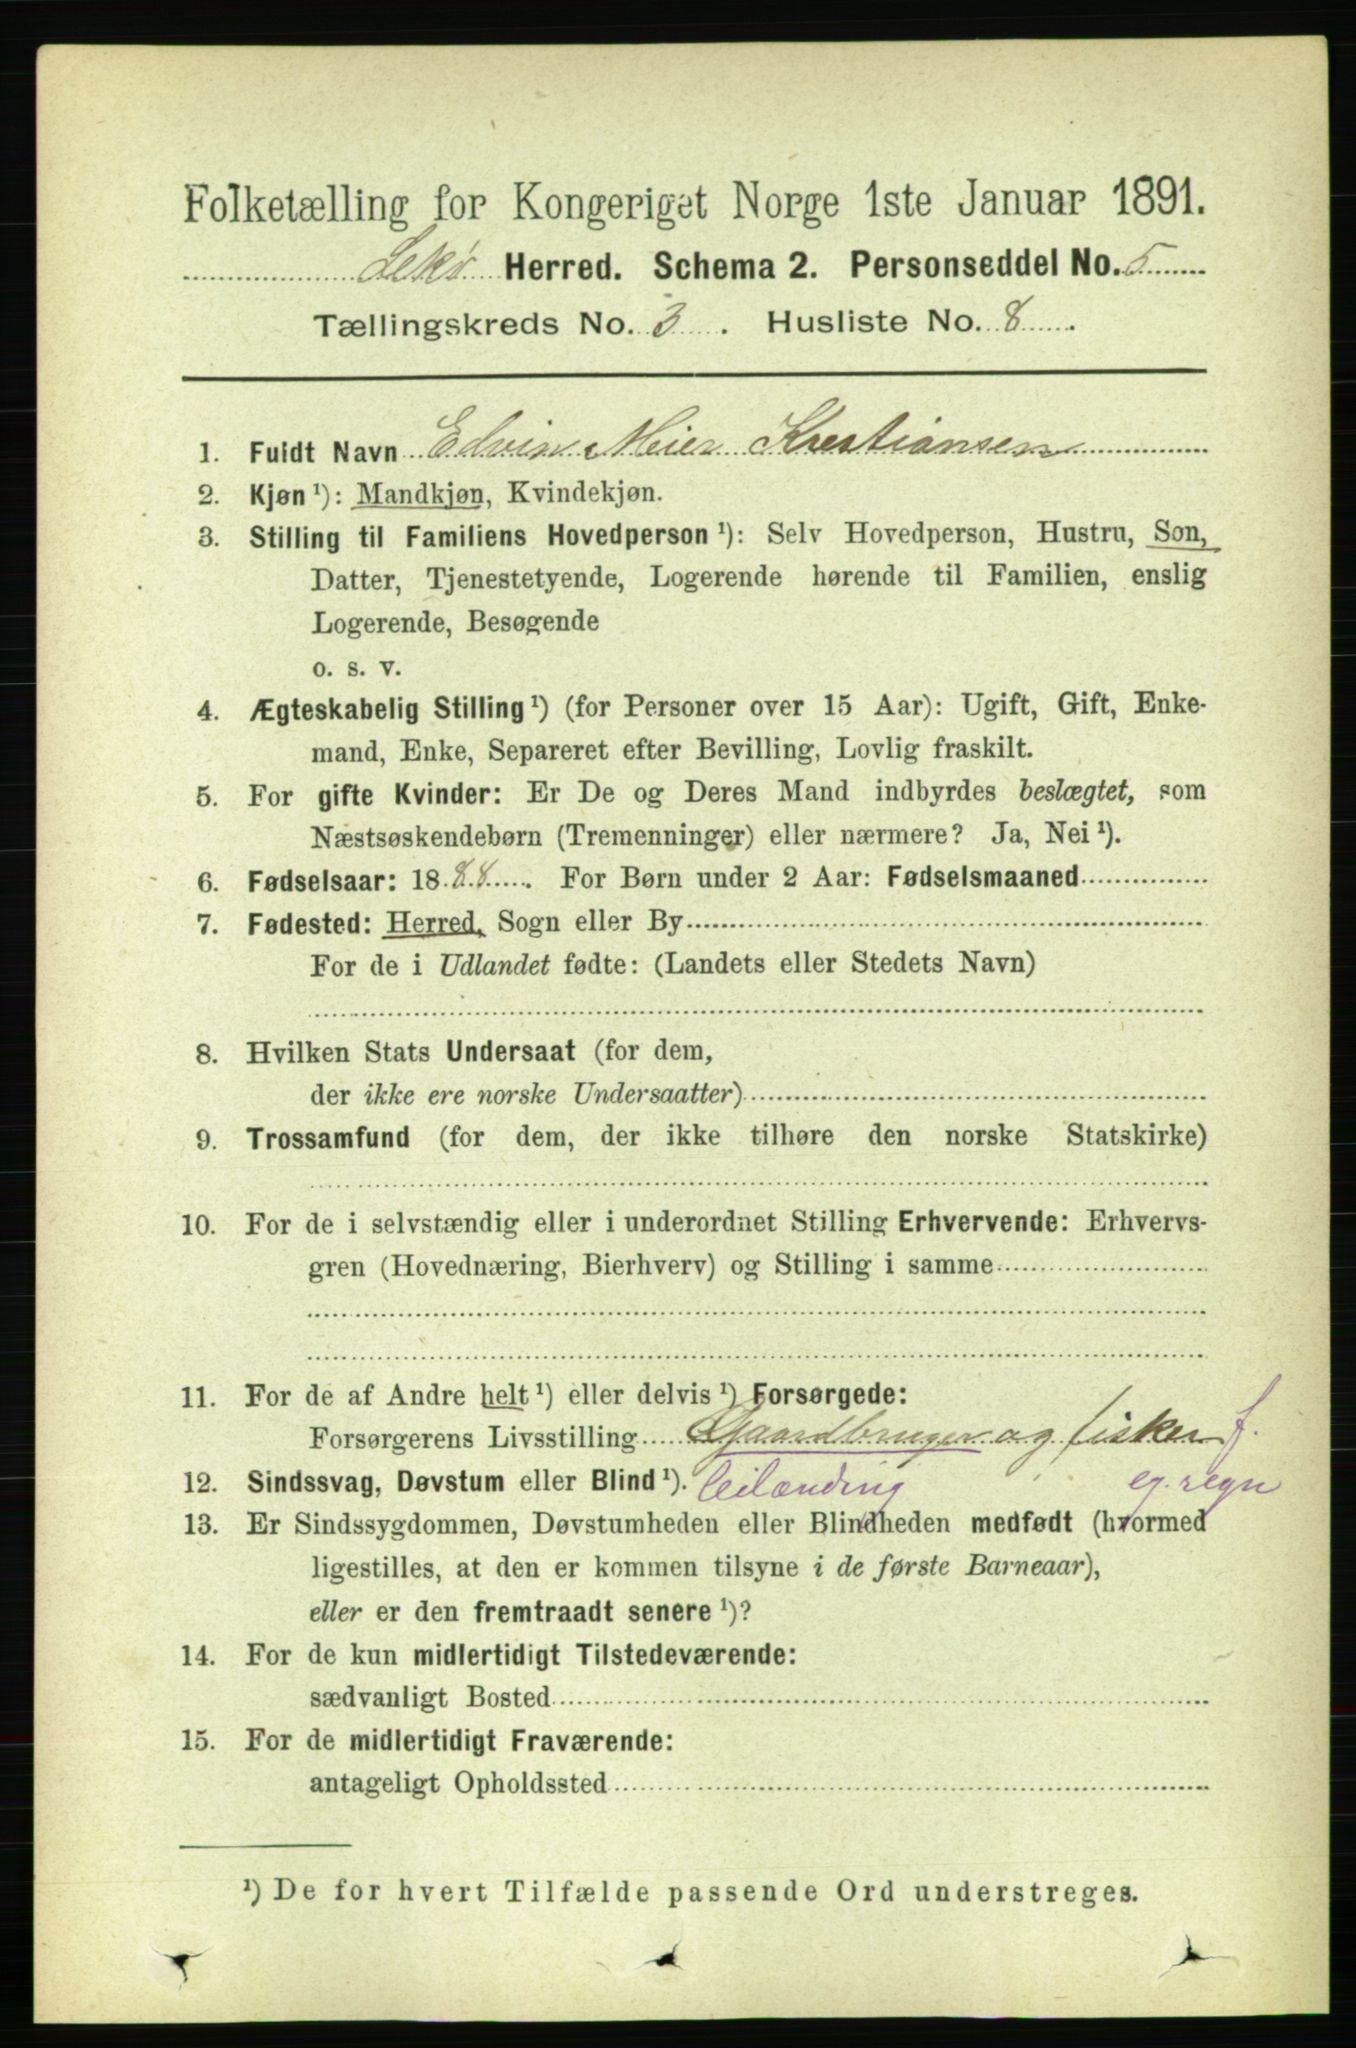 Folketælling for Kongeriget Norge 1ste Januar 1891.
Lekø Herred. Schema 2. Personseddel No. 5
Tællingskreds No. 3. Husliste No. 8.
1. Fuldt Navn Edvin Meier Krestiansen
2. Kjøn ¹): Mandkjøn, Kvindekjøn.
3. Stilling til Familiens Hovedperson ¹): Selv Hovedperson, Hustru, Søn,
Datter, Tjenestetyende, Logerende hørende til Familien, enslig
Logerende, Besøgende
o. s. v.
4. Ægteskabelig Stilling ¹) (for Personer over 15 Aar): Ugift, Gift, Enke-
mand, Enke, Separeret efter Bevilling, Lovlig fraskilt.
5. For gifte Kvinder: Er De og Deres Mand indbyrdes beslægtet, som
Næstsøskendebørn (Tremenninger) eller nærmere? Ja, Nei ¹).
6. Fødselsaar: 1888. For Børn under 2 Aar: Fødselsmaaned
7. Fødested: Herred, Sogn eller By
For de i Udlandet fødte: (Landets eller Stedets Navn)
8. Hvilken Stats Undersaat (for dem,
der ikke ere norske Undersaatter)
9. Trossamfund (for dem, der ikke tilhøre den norske Statskirke)
10. For de i selvstændig eller i underordnet Stilling Erhvervende: Erhvervs-
gren (Hovednæring, Bierhverv) og Stilling i samme
11. For de af Andre helt ¹) eller delvis ¹) Forsørgede:
Forsørgerens Livsstilling Gaardbruger og fisker f.
12. Sindssvag, Døvstum eller Blind ¹). leilænding eg. regn
13. Er Sindssygdommen, Døvstumheden eller Blindheden medfødt (hvormed
ligestilles, at den er kommen tilsyne i de første Barneaar),
eller er den fremtraadt senere ¹)?
14. For de kun midlertidigt Tilstedeværende:
sædvanligt Bosted
15. For de midlertidigt Fraværende:
antageligt Opholdssted
¹) De for hvert Tilfælde passende Ord understreges.